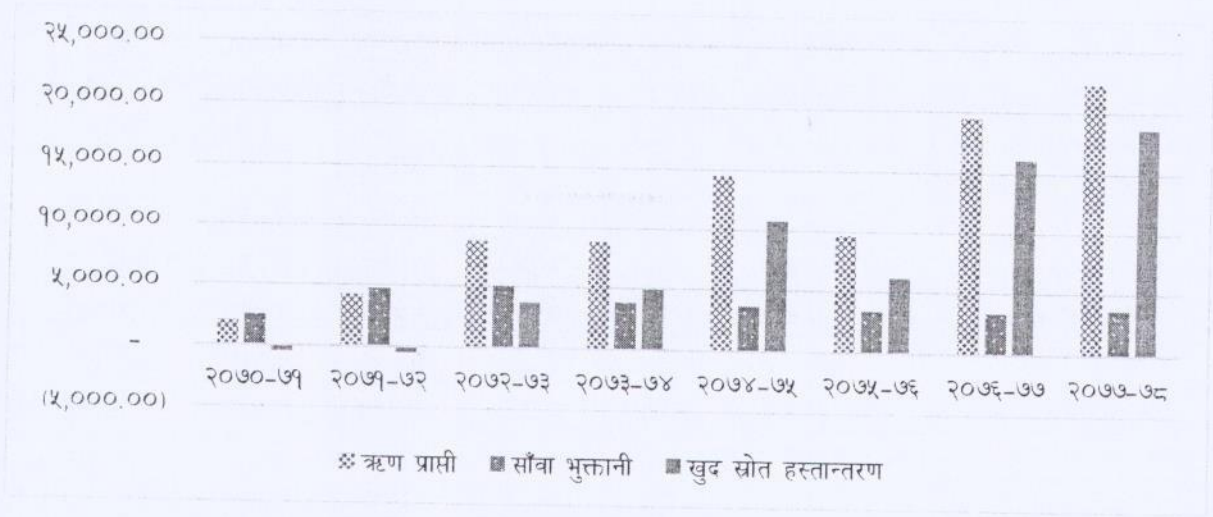 २५,०००.००
२०,०००.००
१५,०००.००
१०,०००.००
५,०००.००
-
(५,०००.००)
२०७०-७१ २०७१-७२ २०७२-७३ २०७३-७४ २०७४-७५ २०७५-७६ २०७६-७७ २०७७-७८
ऋण प्राप्ती साँवा भुक्तानी खुद स्रोत हस्तान्तरण